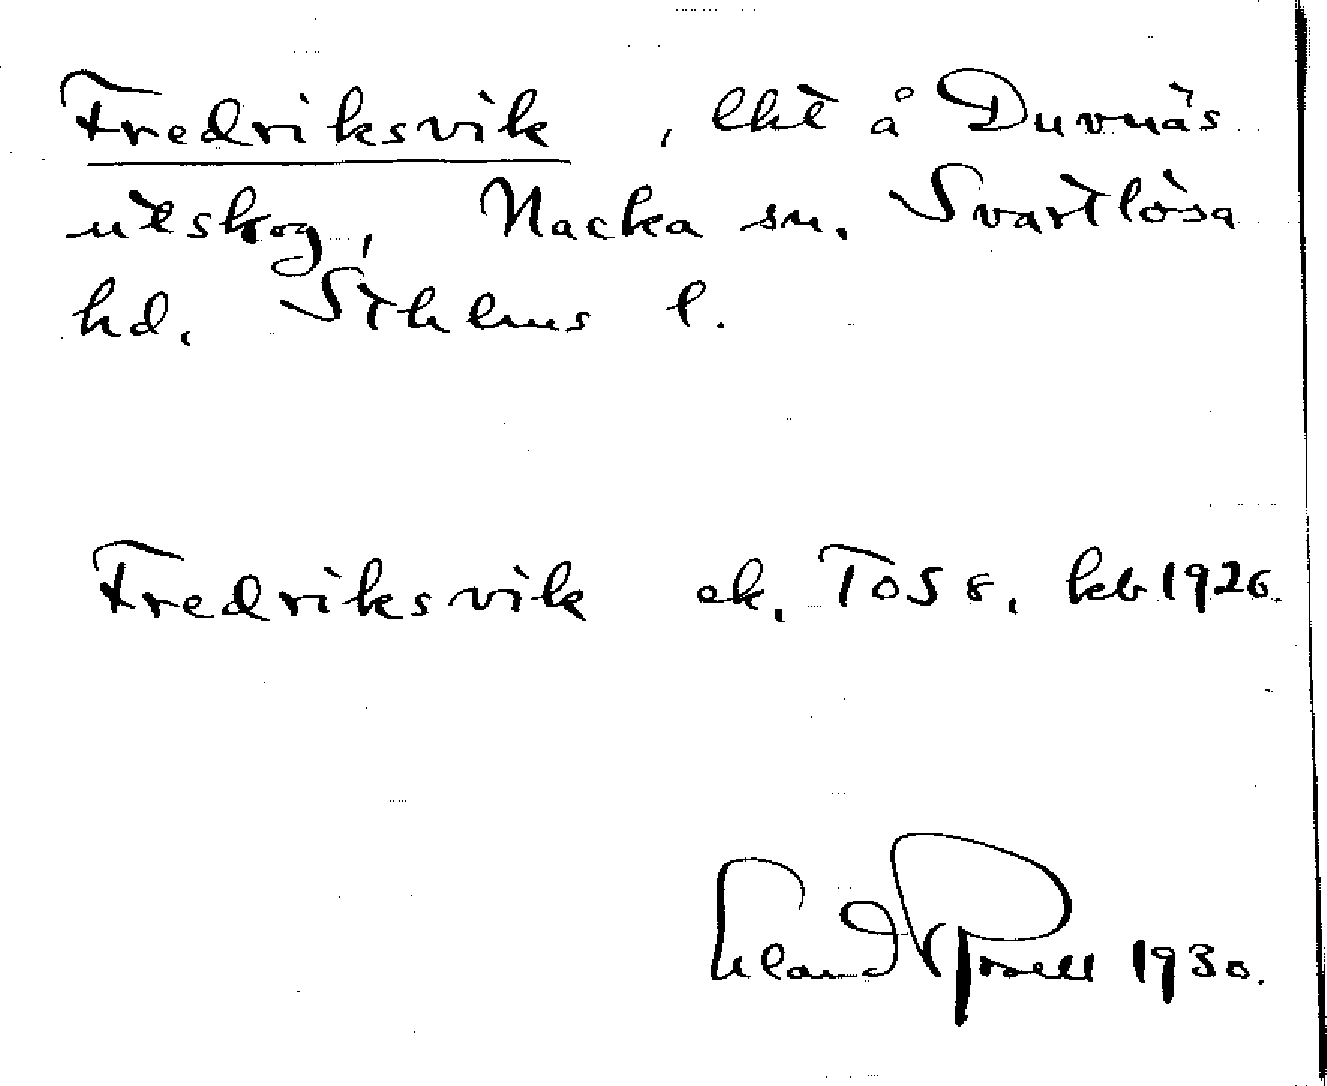 Fredriksvik, lht å Duvnäs
utskog, Nacka sn. Svartlösa
hd. Sthlms l.
Fredriksvik ek. ToS 8. kb 1926.
Erland Rosell 1930.